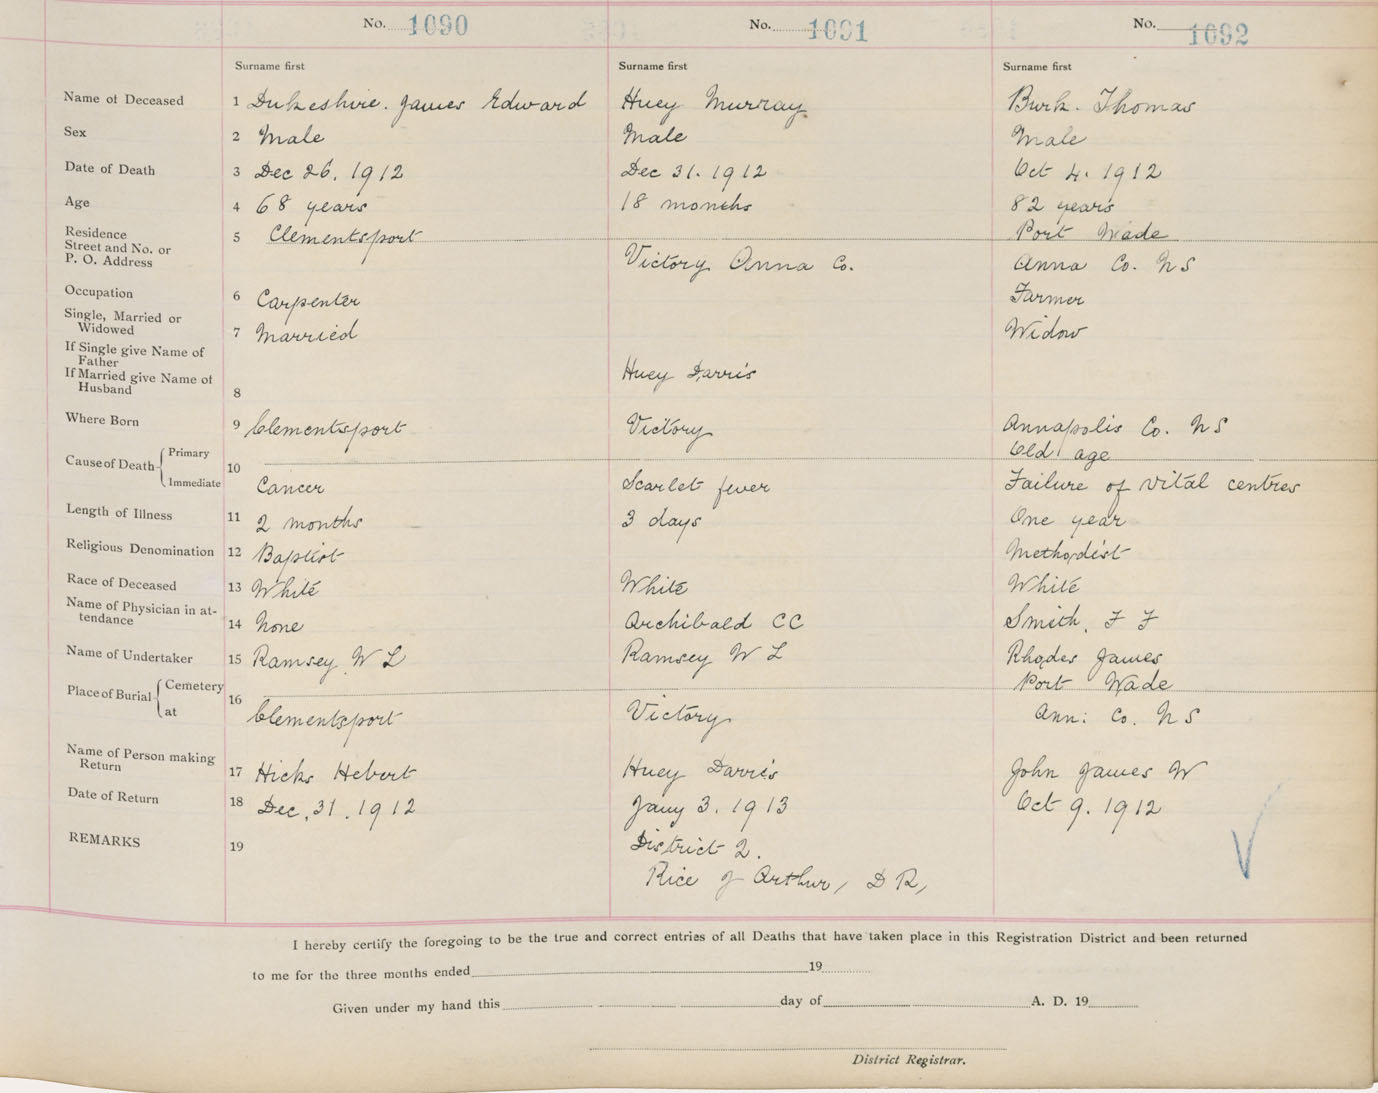 No. 1090 No. 1091 No. 1092
Surname first Surname first Surname first
Name of Deceased 1 Dukeshire. James Edward Huey Murray Burk. Thomas
Sex 2 Male Male Male
Date of Death 3 Dec 26. 1912 Dec 31. 1912 Oct 4. 1912
Age 4 68 years 18 months 82 years
Residence 5 Clementsport Port Wade
Street and No. or
P. O. Address Victory Anna Co. Anna Co. N S
Occupation 6 Carpenter Farmer
Single, Married or
Widowed 7 Married Widow
If Single give Name of
Father
If Married give Name of Huey Darris
Husband 8
Where Born 9 Clementsport Victory Annapolis Co. N S
Primary Old age
Cause of Death 10
Immediate Cancer Scarlet fever Failure of vital centres
Length of Illness 11 2 months 3 days One year
Religious Denomination 12 Baptist Methodist
Race of Deceased 13 White White White
Name of Physician in at-
tendance 14 None Archibald C C Smith, F F
Name of Undertaker 15 Ramsey W L Ramsey W L Rhodes James
Cemetery Port Wade
Place of Burial 16
at Clementsport Victory Ann: Co. N S
Name of Person making
Return 17 Hicks Hebert Huey Darris John James W
Date of Return 18 Dec. 31. 1912 Jany 3. 1913 Oct 9. 1912
REMARKS 19 District 2.
Rice J Arthur, D R,
I hereby certify the foregoing to be the true and correct entries of all Deaths that have taken place in this Registration District and been returned
to me for the three months ended 19
Given under my hand this day of A. D. 19
District Registrar.